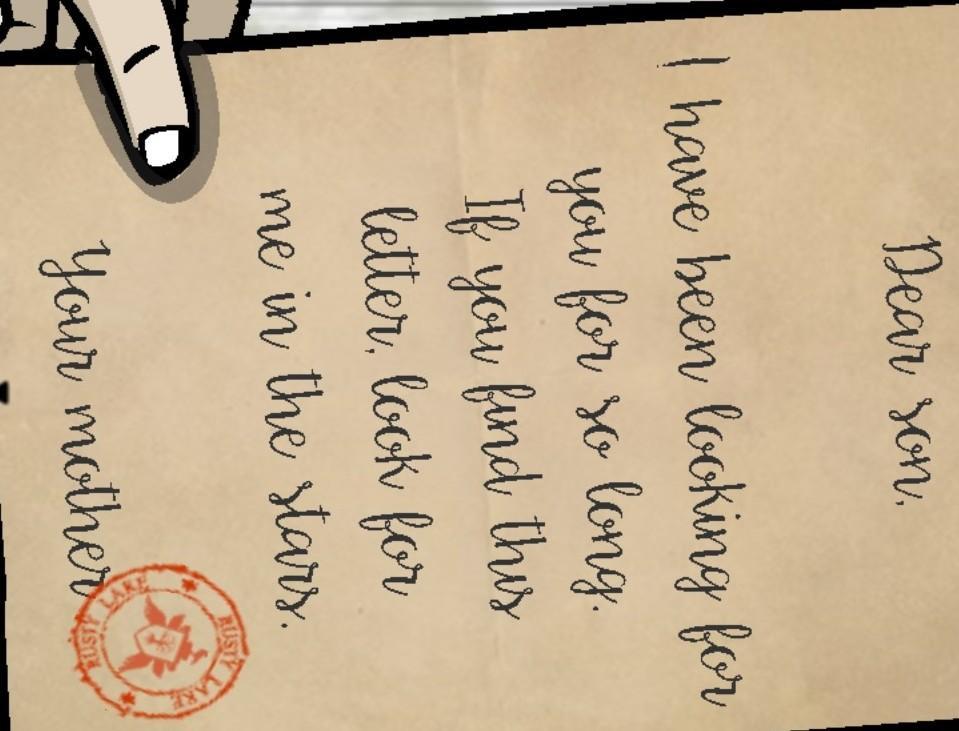 Dear son,
I have been looking for
you for so long.
If you find this
letter, look for
me in the stars.
Your mother
RUSTY LAKE
RUSTY LAKE
RUSTY LAKE